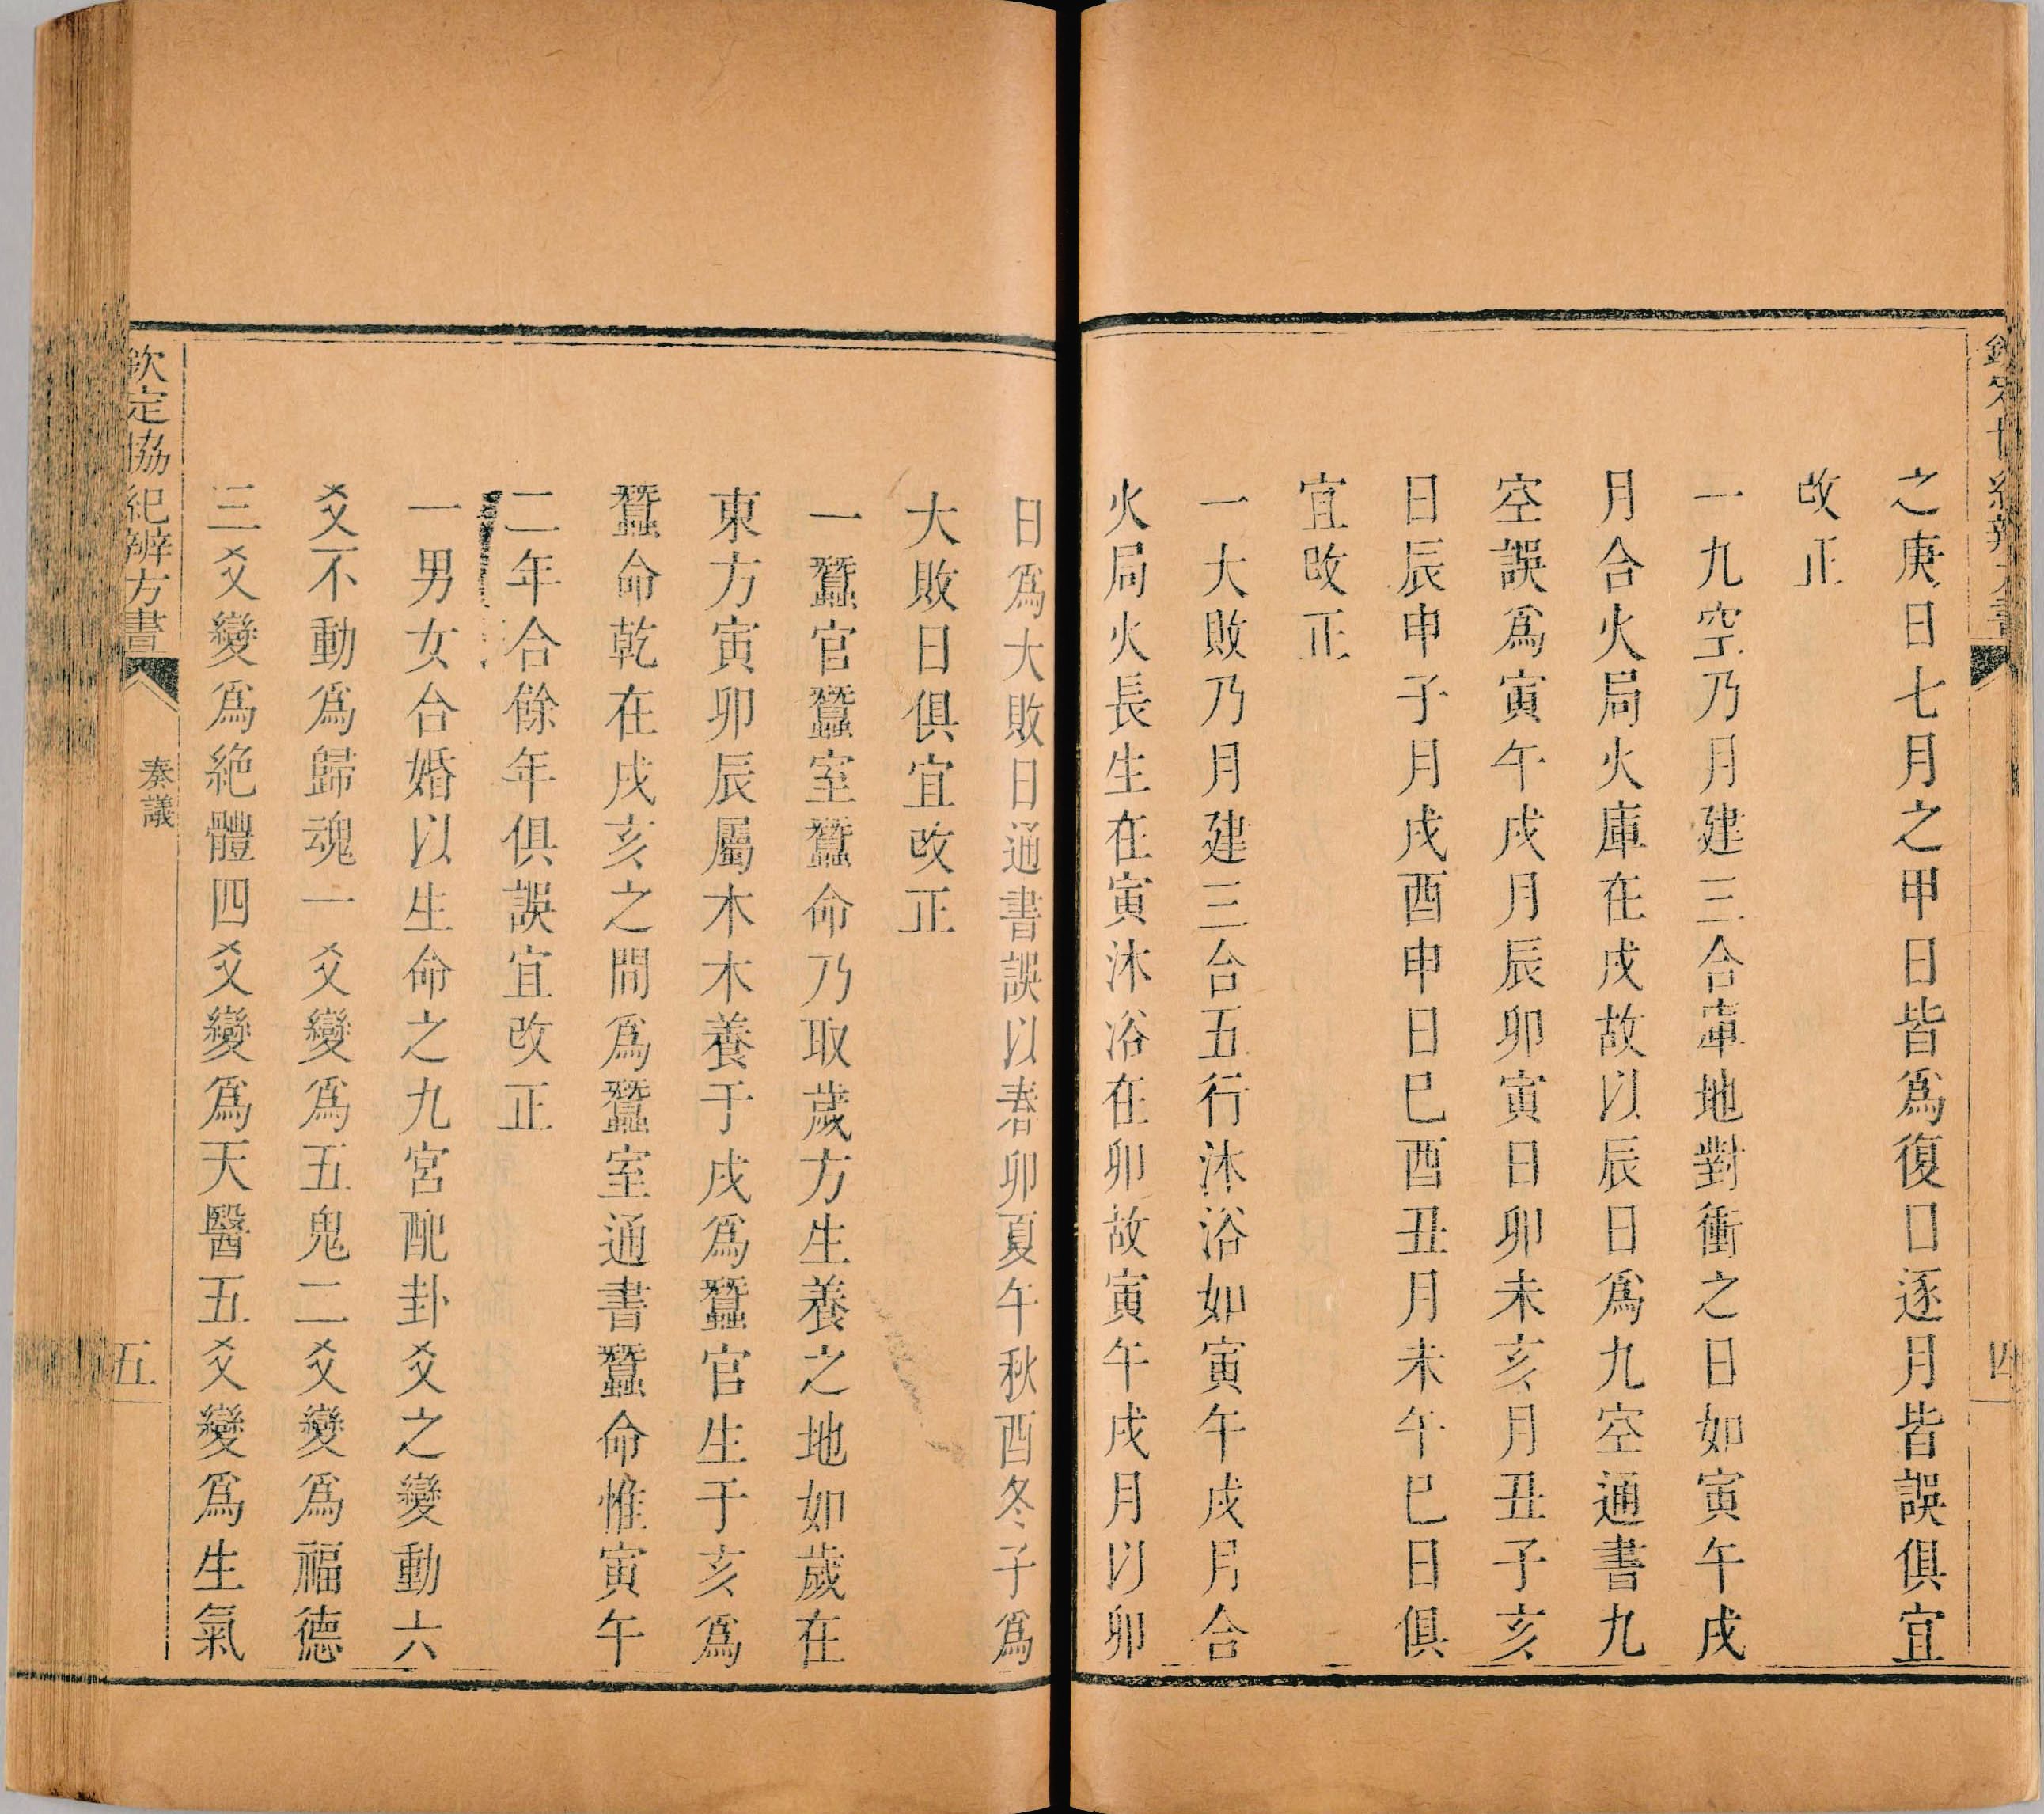 之庚日七月之甲日皆爲復日逐月皆誤俱宜
改正
一九空乃月建三合庫地對衝之日如寅午戌
月合火局火庫在戌故以辰日爲九空通書九
空誤爲寅午戌月辰卯寅日卯未亥月丑子亥
日辰申子月戌酉申日巳酉丑月未午巳日俱
宜改正
一大敗乃月建三合五行沐浴如寅午戌月合
火局火長生在寅沐浴在卯故寅午戌月以卯
四
日爲大敗日通書誤以春卯夏午秋酉冬子爲
大敗日俱宜改正
一蠶官蠶室蠶命乃取歲方生養之地如歲在
東方寅卯辰屬木木養于戌爲蠶官生于亥爲
蠶命乾在戌亥之間爲蠶室通書蠶命惟寅午
二年合餘年俱誤宜改正
一男女合婚以生命之九宮配卦爻之變動六
爻不動爲歸魂一爻變爲五鬼二爻變爲福德
三爻變爲絶體四爻變爲天醫五爻變爲生氣
欽定協紀辨方書
奏議
五